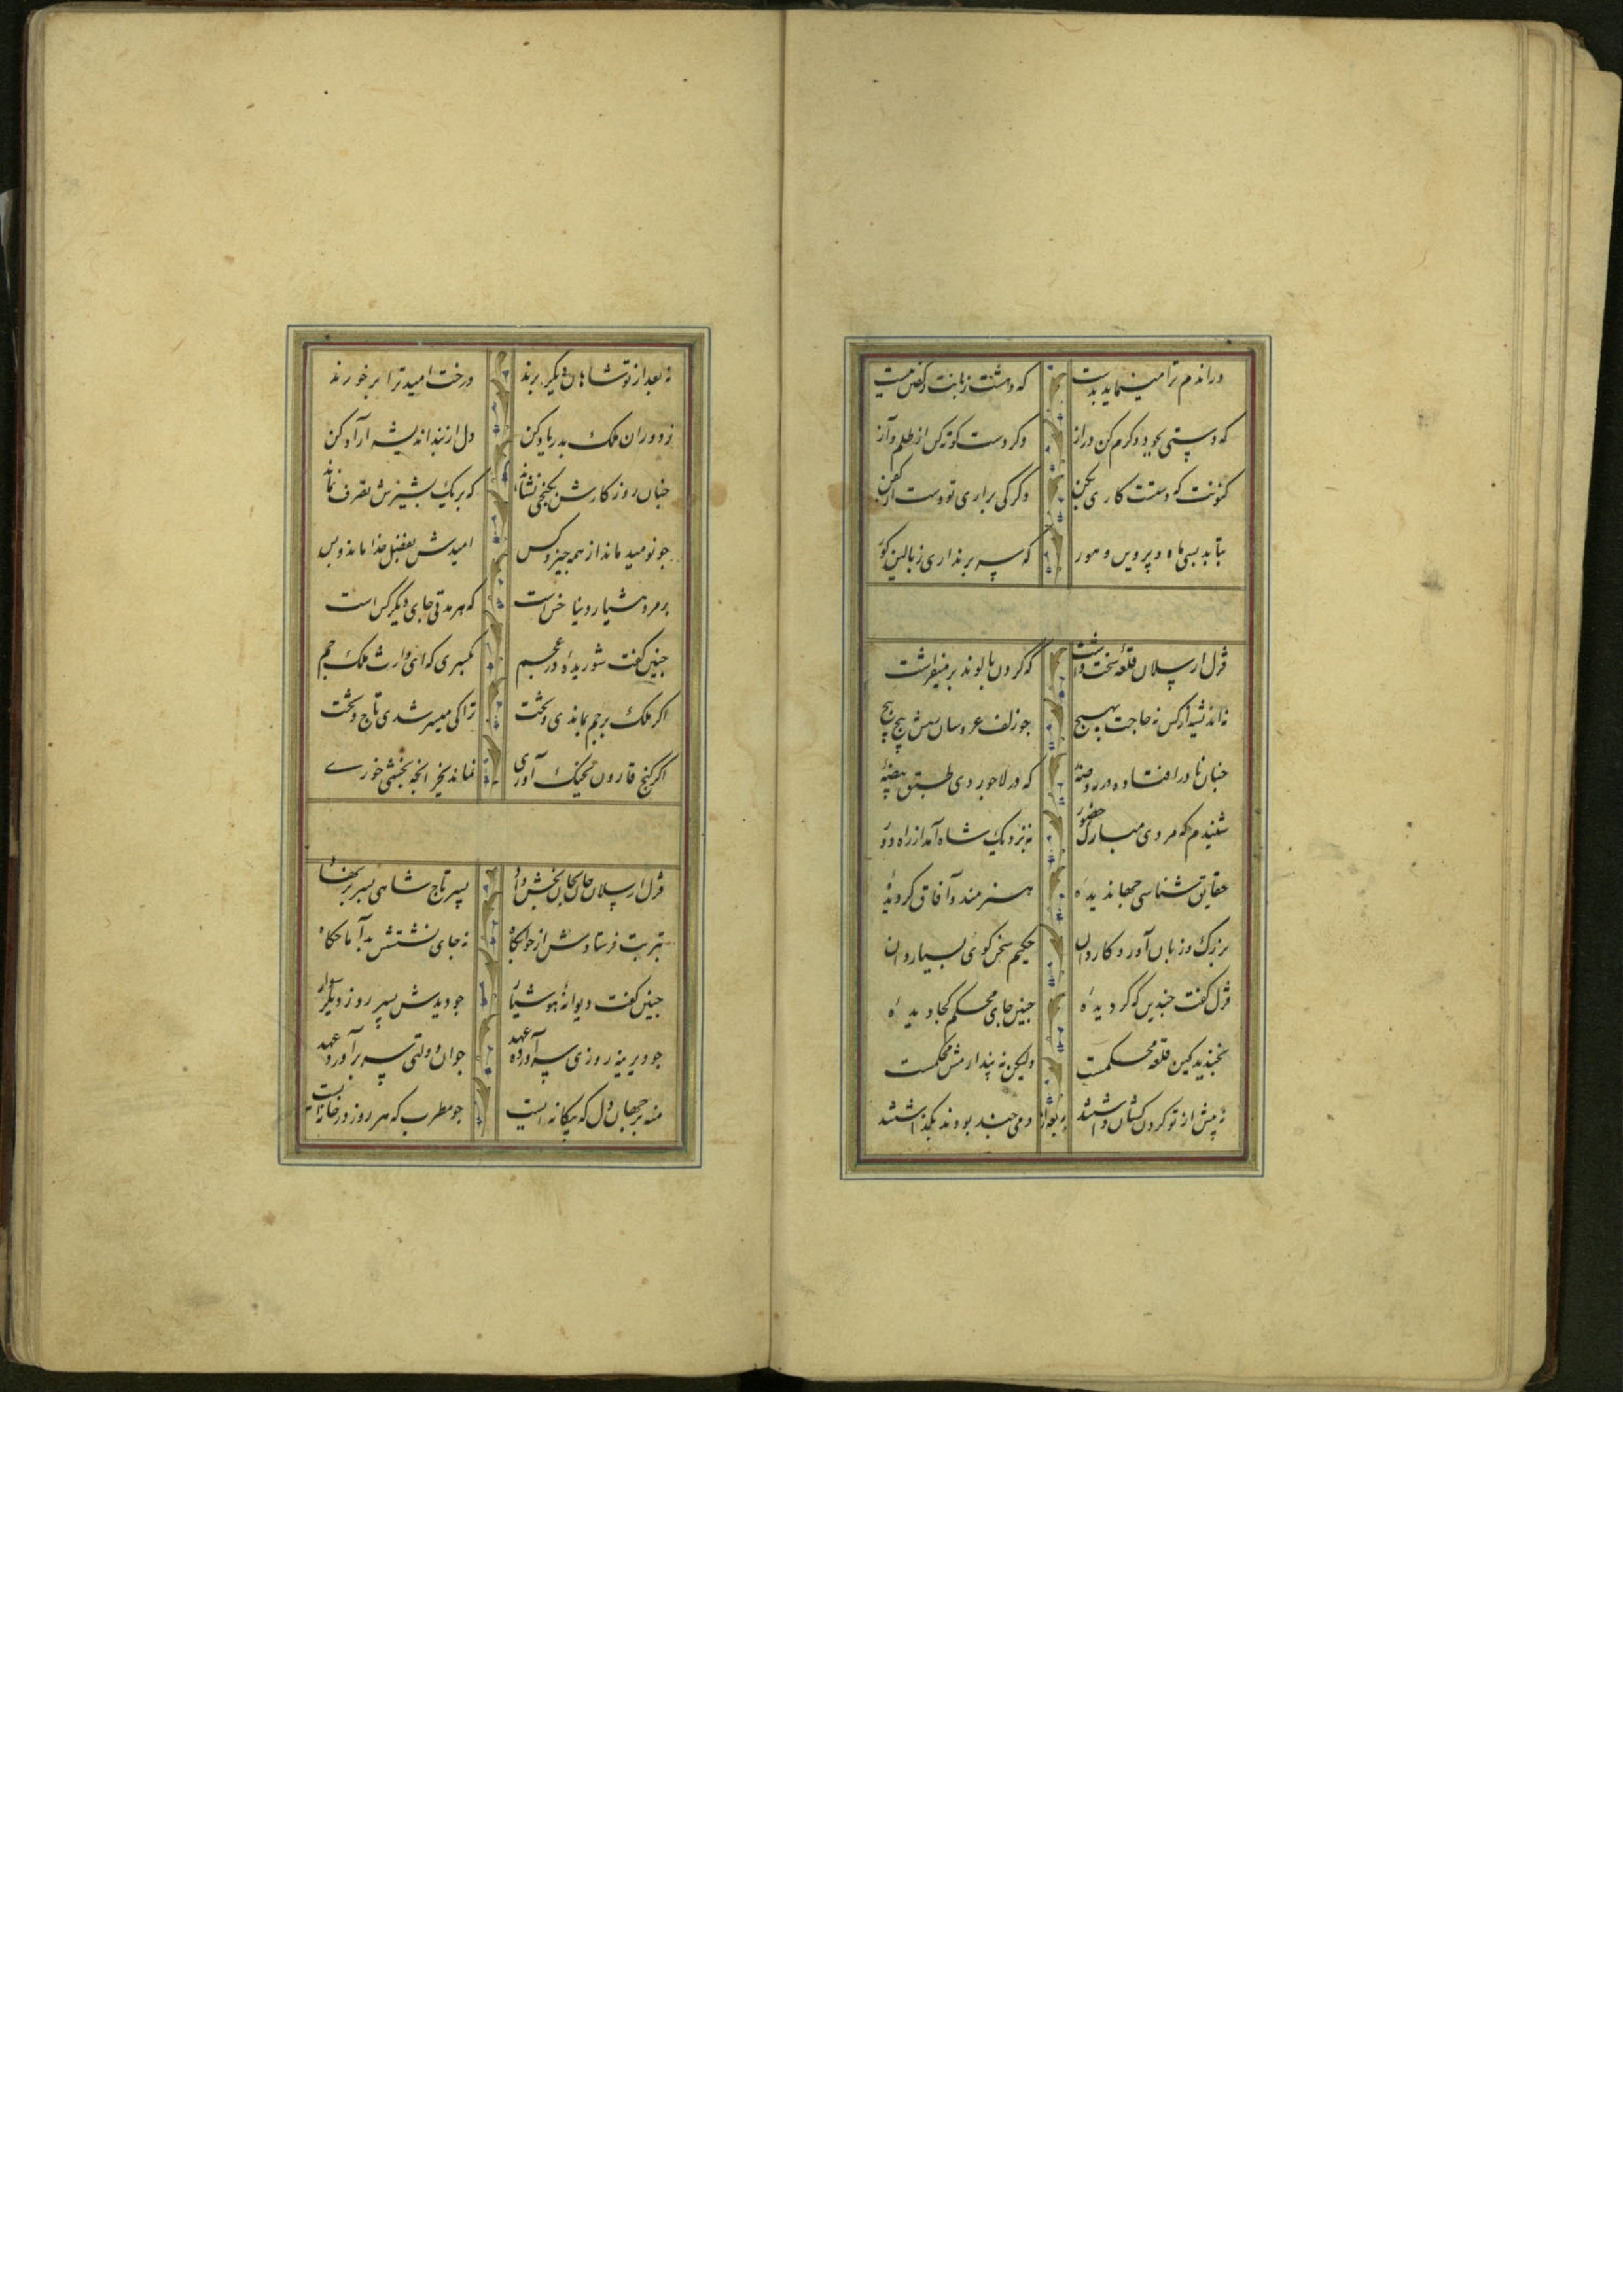 دراندم ترا مینماید بدست که دهشت زبانت ز گفتن ببست
که دستی بجود و کرم کن دراز دکر دست کوته کن از ظلم و آز
کنونت که دستت کاری بکن دکر کی براری تو دست از کفن
بتابد بسی ماه و پروین و هور که سر برنداری ز بالین کور
قزل ارسلان قلعه سخت داشت که کردون بالوند بر میفراشت
نه اندیشه از کس نه حاجت بهیچ جو زلف عروسان رهش پیچ پیچ
جنان نادر افتاده در روضهٔ که در لاجوردی طبق بیضهٔ
شنیدم که مردی مبارک حضور بنزدیک شاه آمد از راه دور
حقایق شناسی جهاندیدهٔ هنرمند و آفاق کردیدهٔ
بزرک و زبان آور و کاردان حکیم سخن کوی بسیار دان
قزل کفت جندین که کردیدهٔ جنین جای محکم کجا دیدهٔ
بخندید کین قلعه محکمست ولیکن نه پندارمش محکمست
نه پیش از تو کردن کشان داشتند دمی جند بودند بکذاشتند
نه بعد از تو شاهان دیکر برند درخت امید ترا بر خورند
ز دوران ملک بدر یاد کن دل از بند اندیشه آزاد کن
جنان روزکارش بکنجی نشاند که بر یک بشیزش تصرف نماند
جو نومید ماند از همه جیز و کس امیدش بفضل خدا ماند و بس
بر مرد هشیار دنیا خس است که هر مدتی جای دیکر کس است
جنین کفت شوریدهٔ در عجم بکسری که ای وارث ملک جم
اکر ملک بر جم بماندی و بخت ترا کی میسر شدی تاج و تخت
اکر کنج قارون بجنک آوری نماند بجز آنجه بخشی خوری
قزل ارسلان جان بجان بخش داد پسر تاج شاهی بسر بر نهاد
بتربت فرستادش از خوابکاه نه جای نشستش بد آماجکاه
جنین کفت دیوانهٔ هوشیار جو دیدش پسر روز دیکر سوار
جو دیرینه روزی سر آورد عهد جوان دولتی سر برآورد عهد
منه بر جهان دل که بیکانه ایست جو مطرب که هر روز در خانه ایست